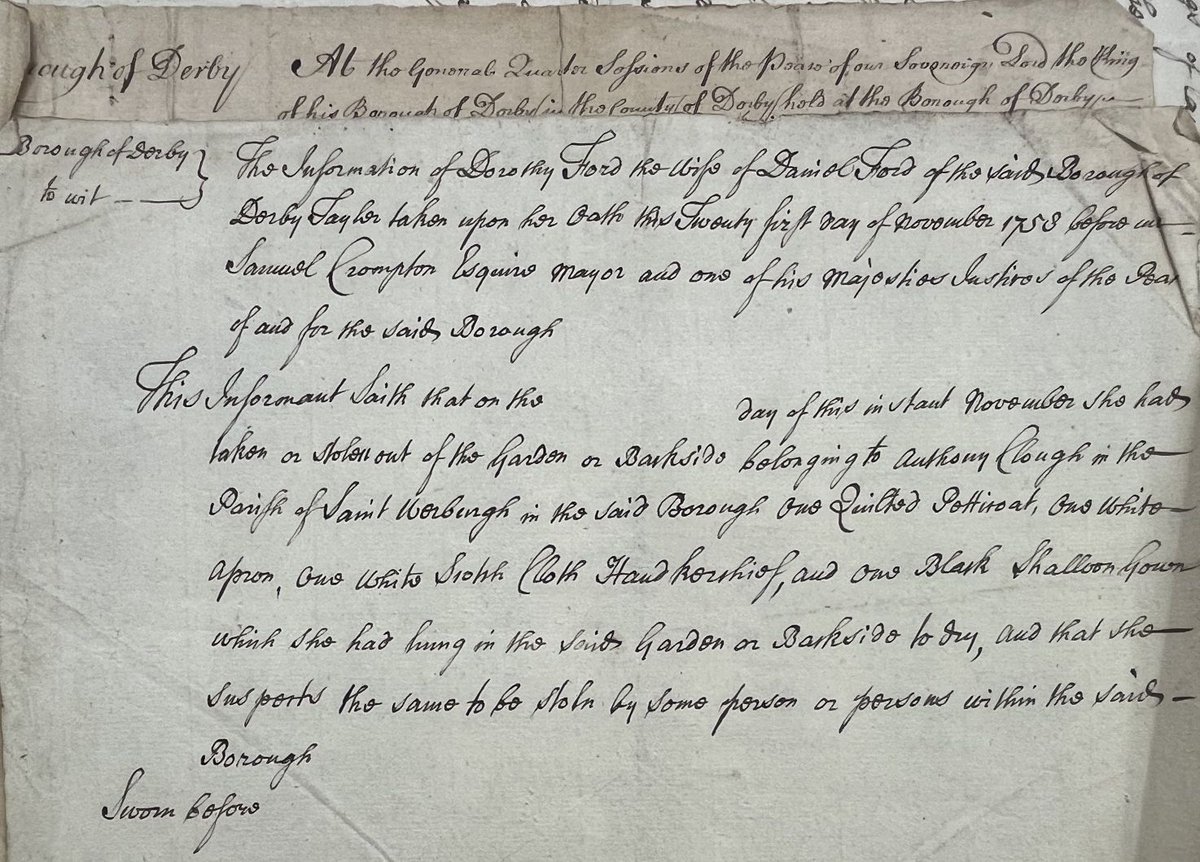 ough of Derby At the General Quarter Sessions of the Peace of our Sovereign Lord the King
of his Borough of Derby in the County of Derby held at the Borough of Derby
Borough of Derby
to wit
The Information of Dorothy Ford the Wife of Daniel Ford of the said Borough of
Derby Tayler taken upon her Oath this Twenty first day of November 1758 before me
Samuel Crompton Esquire Mayor and one of his Majesties Justices of the Peac
of and for the said Borough
This Informant Saith that on the day of this instant November she had
taken or stolen out of the Garden or Backside belonging to Anthony Clough in the
Parish of Saint Werburgh in the said Borough One Quilted Petticoat, One White
Apron, One White Scotch Cloth Handkerchief, and One Black Shalloon Gown
which she had hung in the said Garden or Backside to dry, and that she
suspects the same to be stoln by some person or persons within the said
Borough
Sworn before